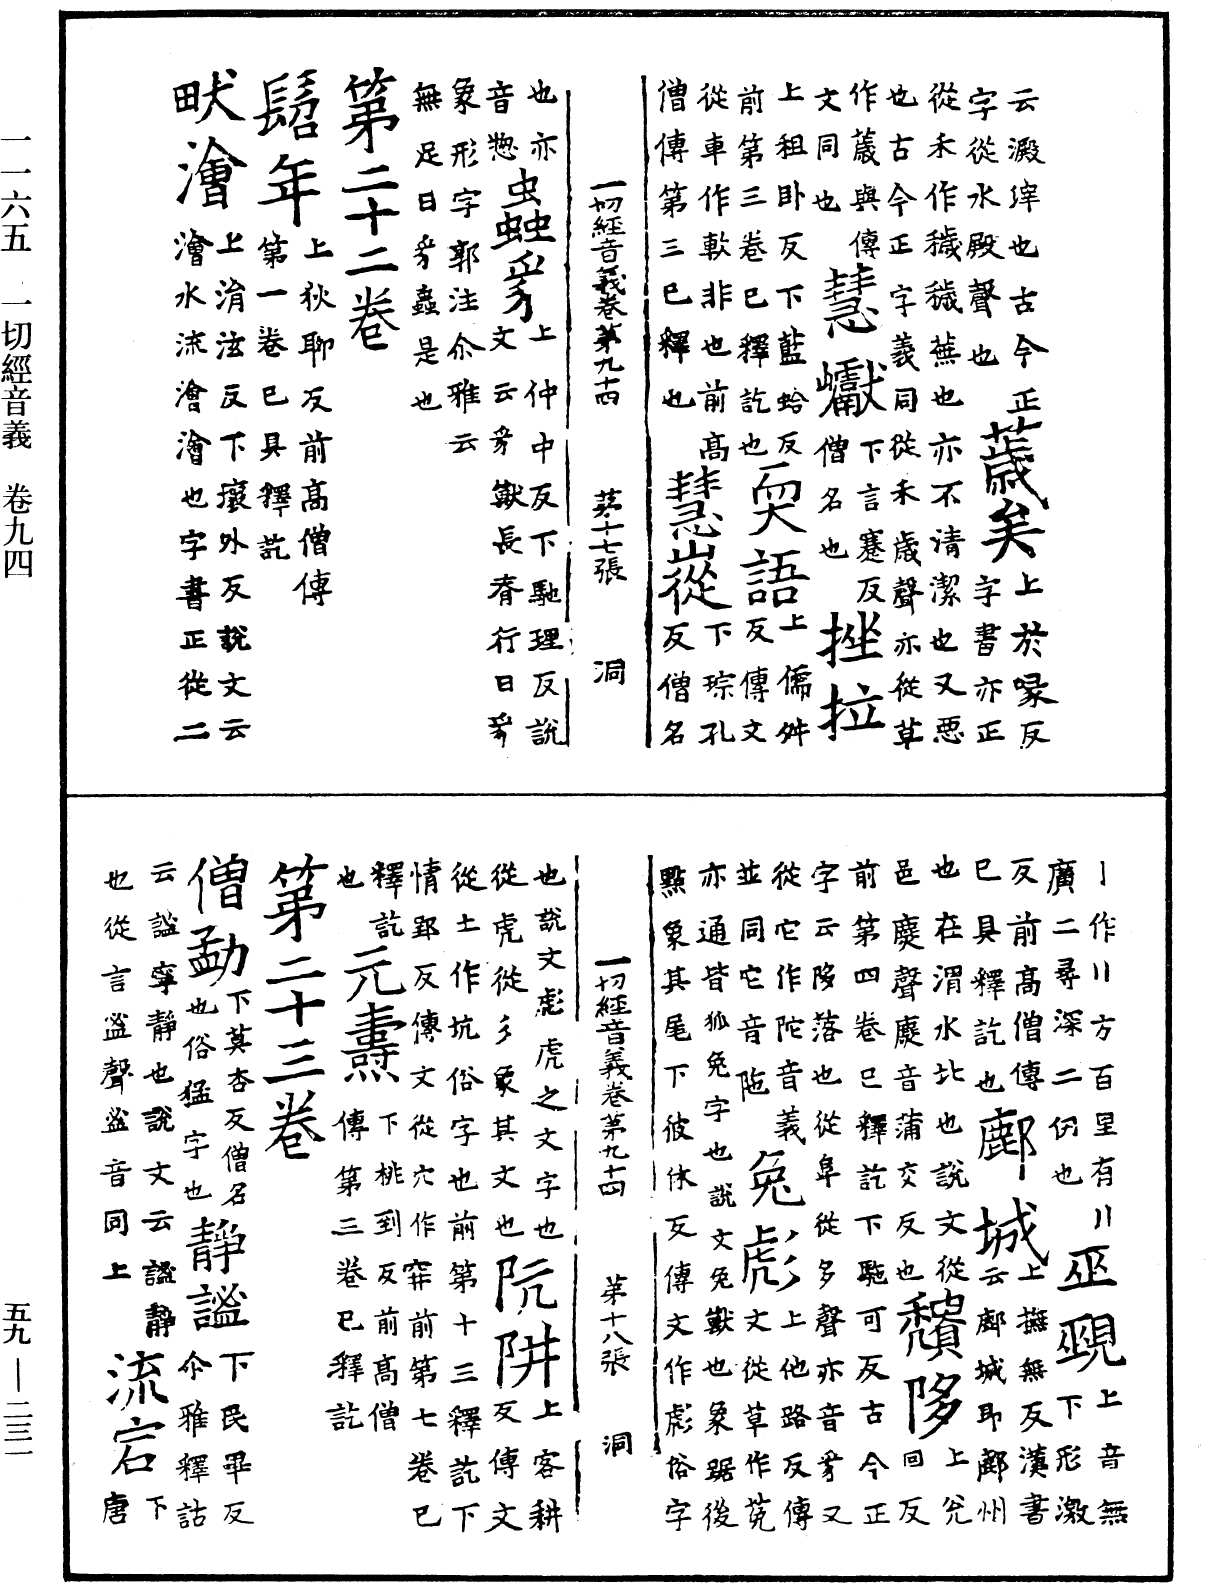 云澱滓也古今正薉矣上於喙反
字從水殿聲也字書亦正
從禾作穢穢蕪也亦不清潔也又惡
也古今正字義同從禾歲聲亦從草
作薉與傳慧巘下言蹇反
文同也僧名也挫拉
上租卧反下藍蛤反耎語上儒舛
前第三卷已釋訖也反傳文
從車作軟非也前高慧嵷下琮孔
僧傳第三已釋也反僧名
一切經音義卷第九十四 第十七張 洞
也亦蟲豸上仲中反下馳理反說
音惣文云豸獸長脊行曰豸
象形字郭注尒雅云
無足曰豸蟲是也
第二十二卷
髫年上狄聊反前高僧傳
第一卷已具釋訖
畎澮上涓泫反下瓌外反說文云
澮水流澮澮也字書正從二
丨作〢方百里有〢巫覡上音無
廣二尋深二仞也下形激
反前高僧傳鄜城上撫無反漢書
已具釋訖也云鄜城即鄜州
也在渭水北也說文從穨陊上兊
邑麃聲麃音蒲交反也回反
前第四卷已釋訖下馳可反古今正
字云陊落也從阜從多聲亦音豸又
從它作陀音義兔彪上他路反傳
並同它音陁文從草作莵
亦通皆狐兔字也說文兔獸也象踞後
㸃象其尾下彼休反傳文作彪俗字
一切經音義卷第九十四 第十八張 洞
也說文彪虎之文字也阬阱上客耕
從虎從彡象其文也反傳文
從土作坑俗字也前第十三釋訖下
情郢反傳文從穴作穽前第七卷已
釋訖元燾下桃到反前高僧
也傳第三卷已釋訖
第二十三卷
僧勐下莫杏反僧名靜謐下民畢反
也俗猛字也尒雅釋詁
云謐寧靜也說文云謐靜流宕下
也從言㿴聲㿴音同上唐
一一六五 一切經音義 卷九四
五九—二三一